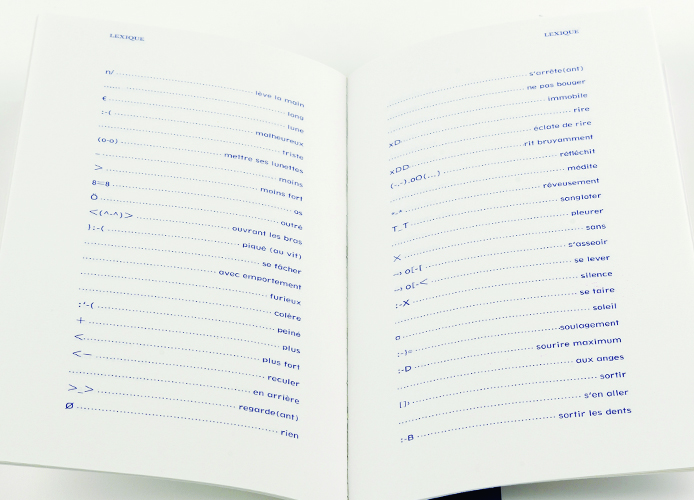 LEXIQUE
n/ ........ lève la main
........ long
€ ........ lune
:-( ........ malheureux
........ triste
(o-o) ........ mettre ses lunettes
- ........ moins
> ........ moins fort
8=8 ........ os
Ö ........ outré
<(^-^)> ........ ouvrant les bras
):-( ........ piqué (au vif)
........ se fâcher
........ avec emportement
........ furieux
........ colère
:'-( ........ peiné
+ ........ plus
< ........ plus fort
<- ........ reculer
........ en arrière
>_> ........ regarde(ant)
Ø ........ rien
LEXIQUE
........ s'arrête(ant)
........ ne pas bouger
........ immobile
xD ........ rire
........ éclate de rire
xDD ........ rit bruyamment
(-.-).oO(...) ........ réfléchit
........ médite
........ rêveusement
T_T ........ sangloter
........ pleurer
X ........ sans
→ o[-[ ........ s'asseoir
→ o[-< ........ se lever
:-X ........ silence
........ se taire
¤ ........ soleil
:-)= ........ soulagement
:-D ........ sourire maximum
........ aux anges
[]› ........ sortir
........ s'en aller
:-B ........ sortir les dents